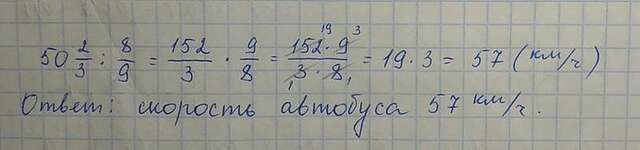 50 2/3 : 8/9 = 152/3 · 9/8 = 152 · 9/3 · 8 = 19 · 3 = 57 (км/ч)
Ответ: скорость автобуса 57 км/ч.